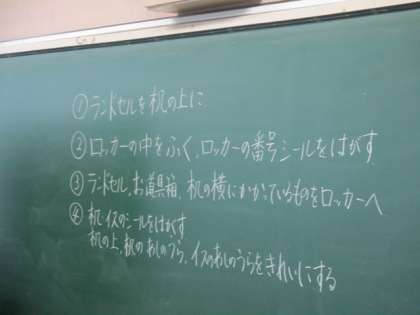 ① ランドセルを机の上に
② ロッカーの中をふく、ロッカーの番号シールをはがす
③ ランドセル、お道具箱、机の横にかかっているものをロッカーへ
④ 机・イスのシールをはがす
机の上、机のあしのうら、イスのあしのうらをきれいにする